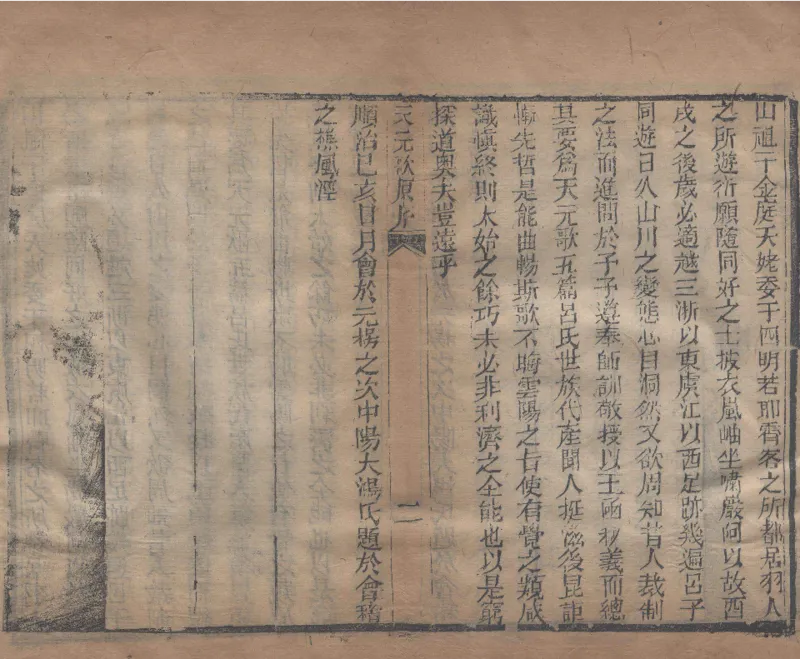 山祖于金庭天姥委于四明若耶霄客之所都居羽人
之所遊衍願隨同好之士披衣嵐岫坐嘯嚴阿以故酉
戌之後歲必適越三浙以東虞江以西足跡幾遍呂子
同遊日久山川之變態心目洞然又欲周知昔人裁制
之法而進問於予予遵奉師訓敬授以玉函秘義而總
其要爲天元歌五篇呂氏世族代產聞人挺茲後昆詎
慚先哲是能曲暢斯歌不晦雲陽之旨使有覺之類咸
識愼終則太始之餘巧未必非利濟之全能也以是窮
探道奧夫豈遠乎
天元歌原序
二
順治己亥日月會於元枵之次中陽大鴻氏題於會稽
之樵風涇